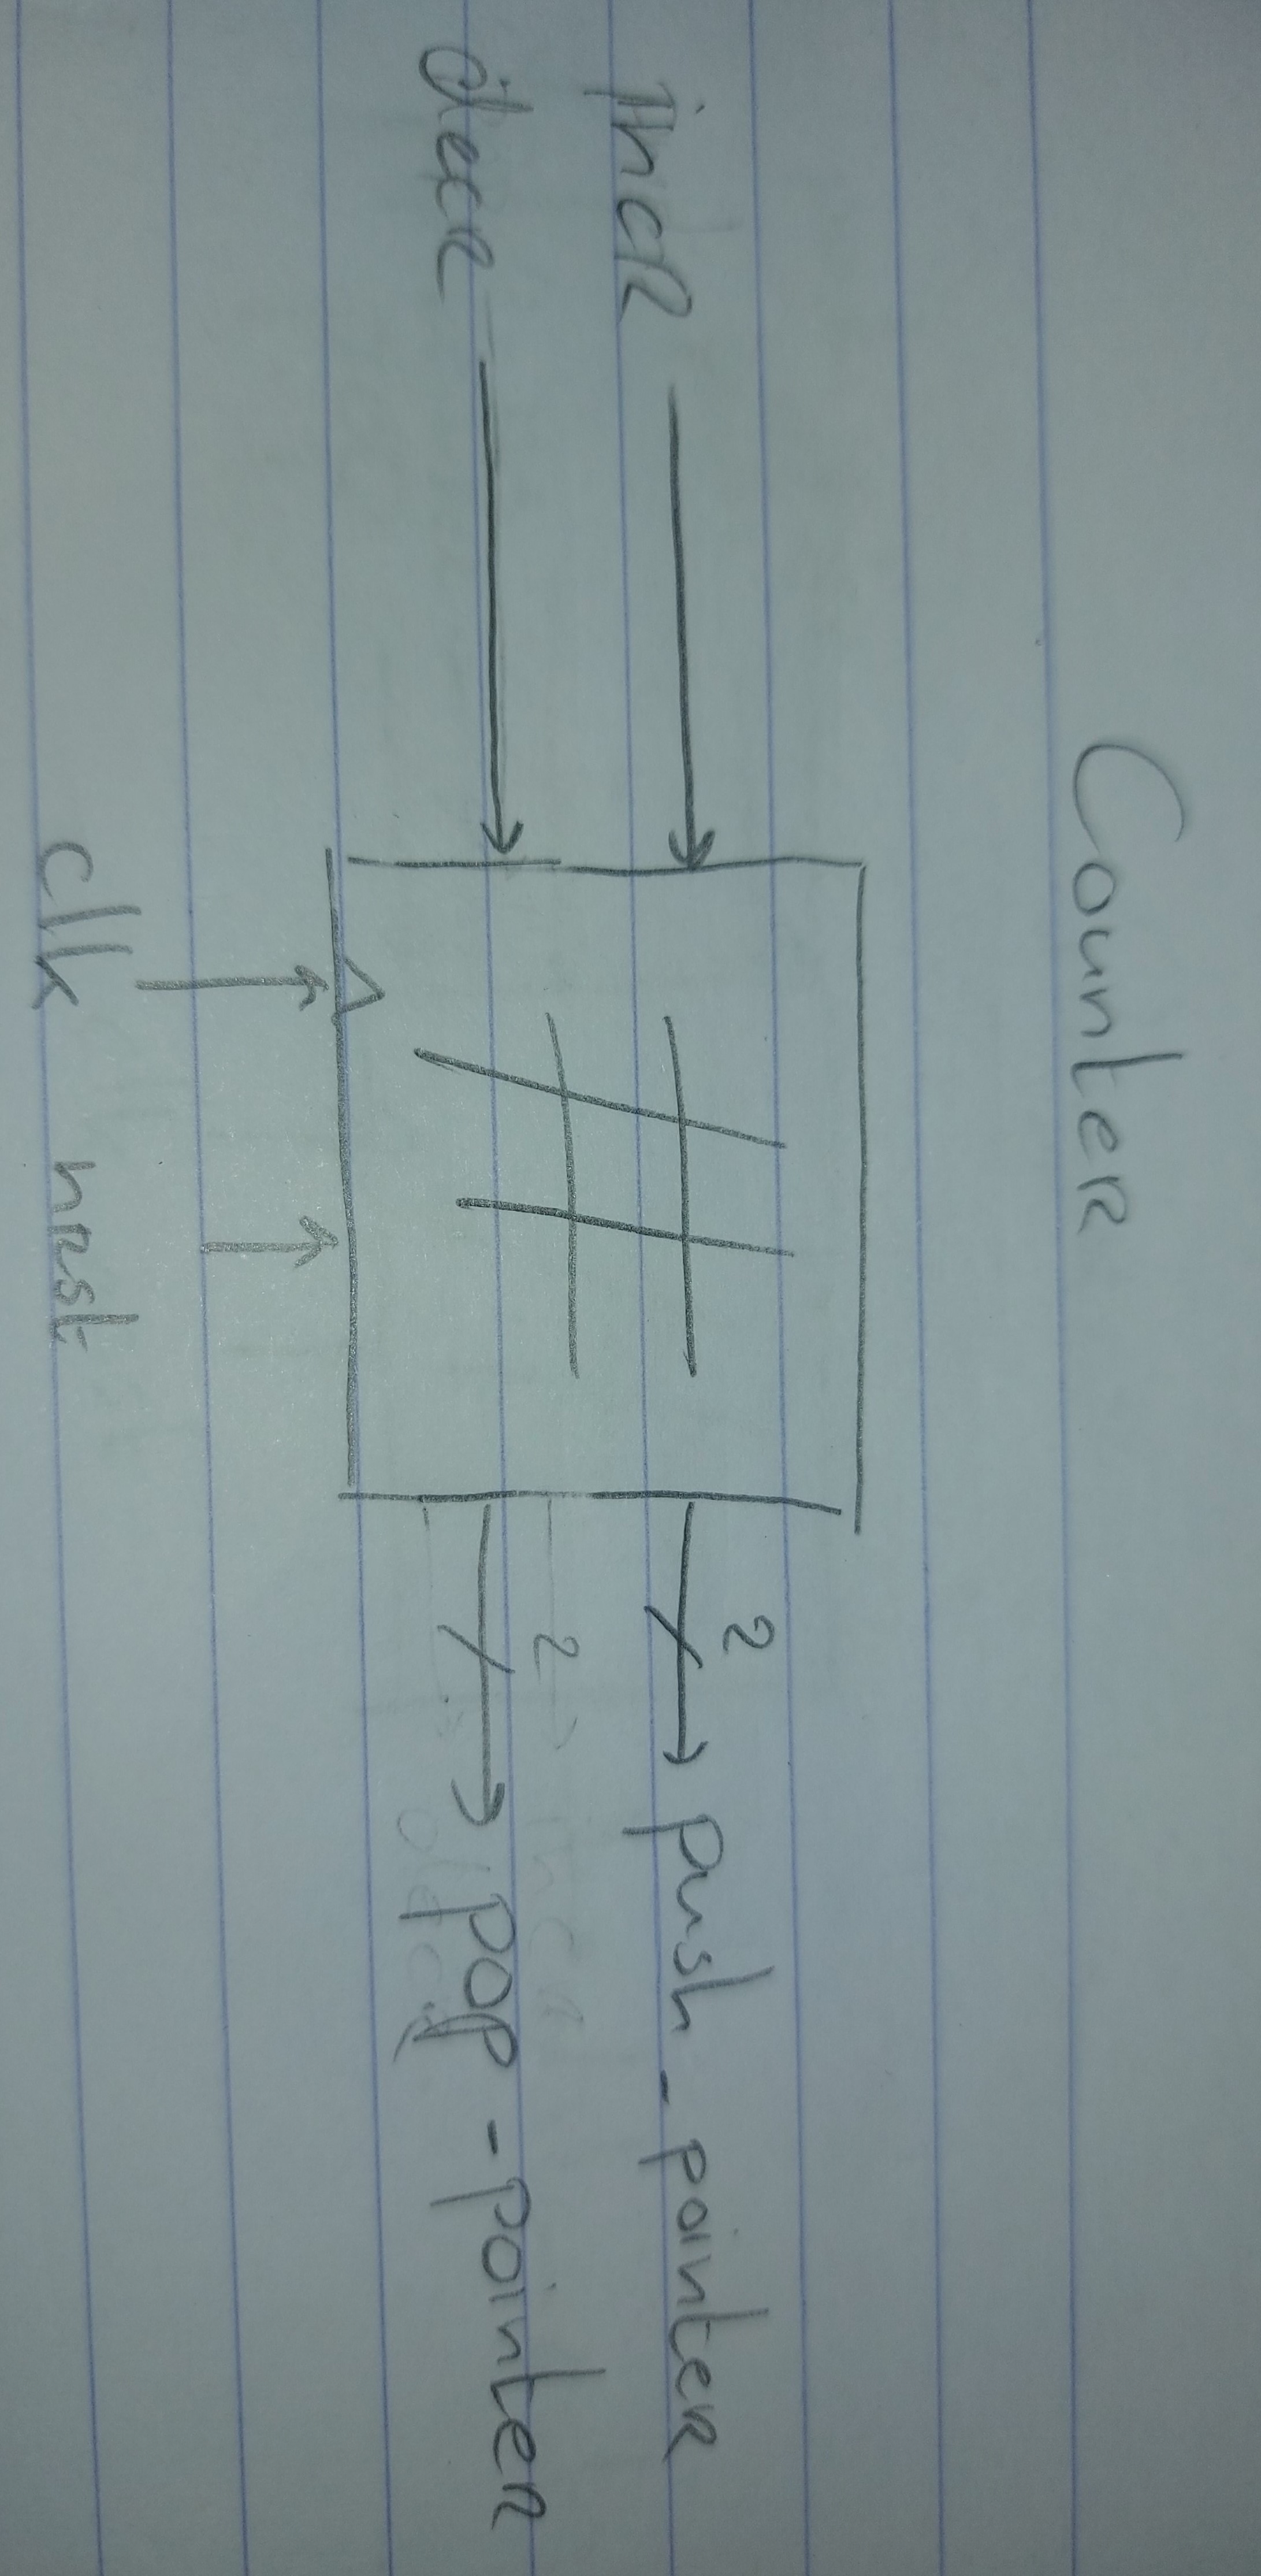 Counter
incr
2
push_pointer
decr
2
pop-pointer
clk nrst